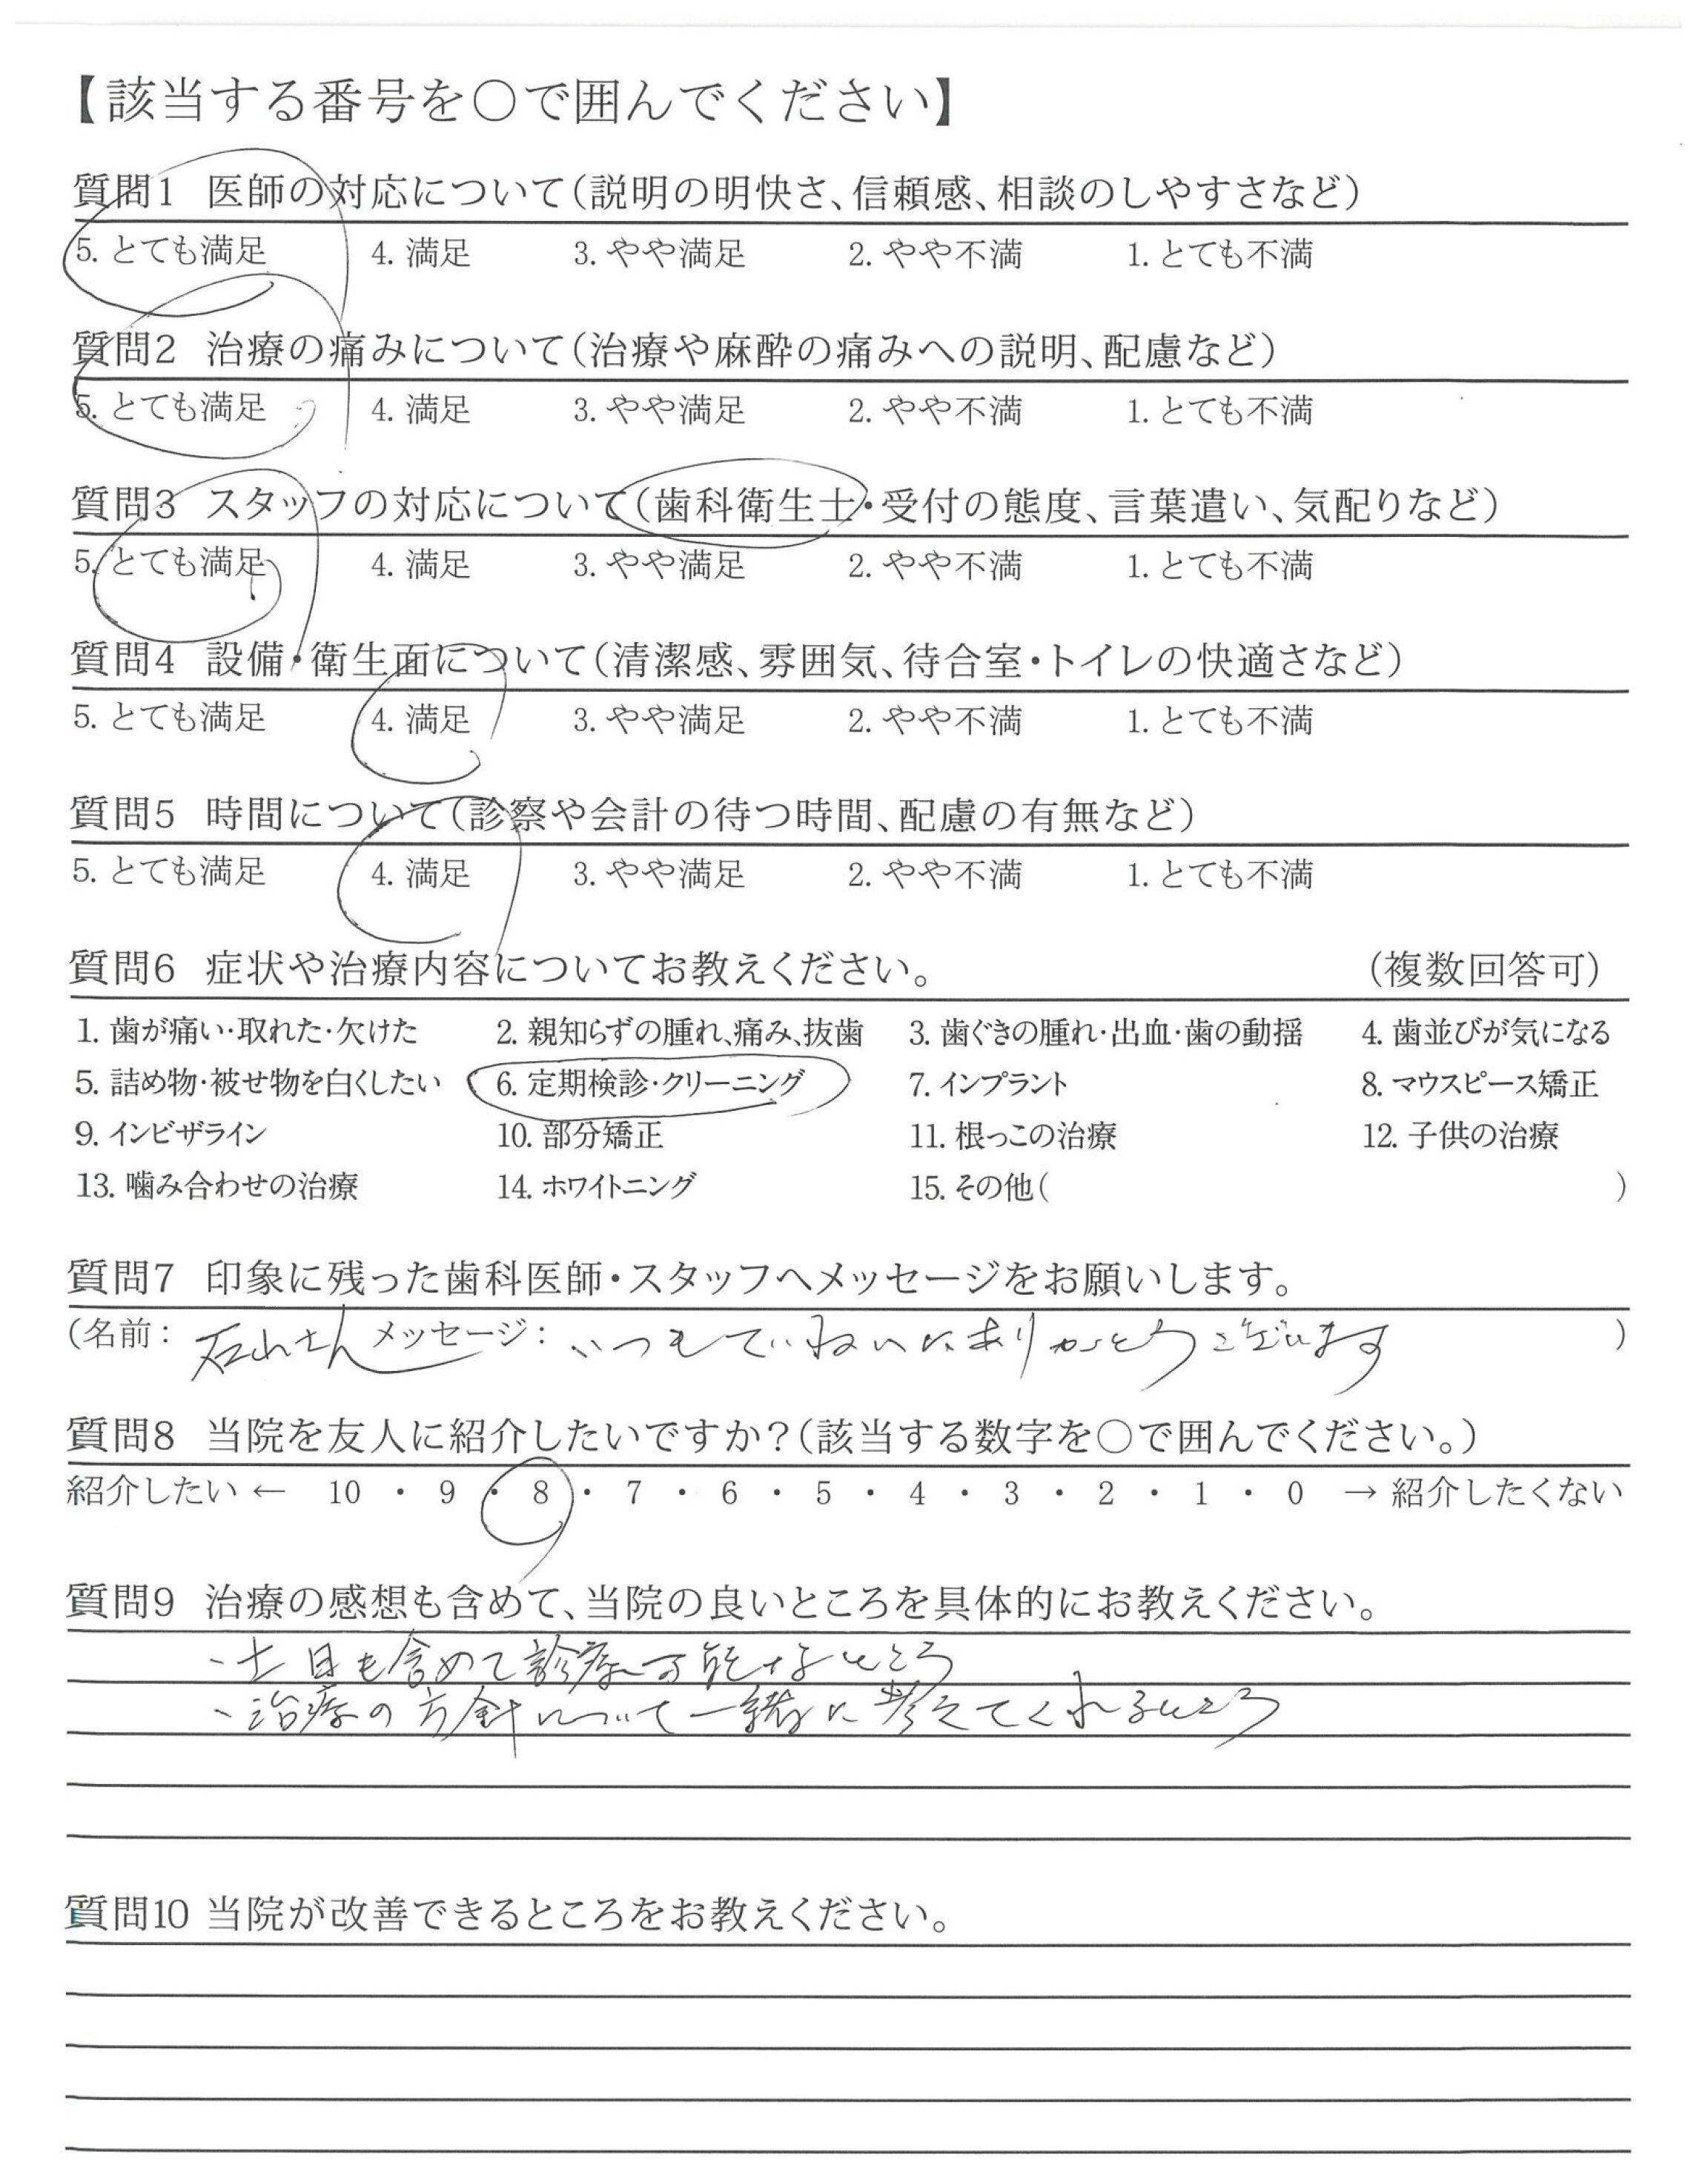 【該当する番号を〇で囲んでください】
質問1 医師の対応について(説明の明快さ、信頼感、相談のしやすさなど)
5. とても満足 4. 満足 3. やや満足 2. やや不満 1. とても不満
質問2 治療の痛みについて(治療や麻酔の痛みへの説明、配慮など)
5. とても満足 4. 満足 3. やや満足 2. やや不満 1. とても不満
質問3 スタッフの対応について(歯科衛生士・受付の態度、言葉遣い、気配りなど)
5. とても満足 4. 満足 3. やや満足 2. やや不満 1. とても不満
質問4 設備・衛生面について(清潔感、雰囲気、待合室・トイレの快適さなど)
5. とても満足 4. 満足 3. やや満足 2. やや不満 1. とても不満
質問5 時間について(診察や会計の待つ時間、配慮の有無など)
5. とても満足 4. 満足 3. やや満足 2. やや不満 1. とても不満
質問6 症状や治療内容についてお教えください。 (複数回答可)
1. 歯が痛い・取れた・欠けた 2. 親知らずの腫れ、痛み、抜歯 3. 歯ぐきの腫れ・出血・歯の動揺 4. 歯並びが気になる
5. 詰め物・被せ物を白くしたい 6. 定期検診・クリーニング 7. インプラント 8. マウスピース矯正
9. インビザライン 10. 部分矯正 11. 根っこの治療 12. 子供の治療
13. 噛み合わせの治療 14. ホワイトニング 15. その他( )
質問7 印象に残った歯科医師・スタッフへメッセージをお願いします。
(名前: さん メッセージ: いつもていねいにありがとうございます )
質問8 当院を友人に紹介したいですか?(該当する数字を〇で囲んでください。)
紹介したい ← 10 ・ 9 ・ 8 ・ 7 ・ 6 ・ 5 ・ 4 ・ 3 ・ 2 ・ 1 ・ 0 → 紹介したくない
質問9 治療の感想も含めて、当院の良いところを具体的にお教えください。
・土日も含めて診療可能なところ
・治療の方針について一緒に考えてくれるところ
質問10 当院が改善できるところをお教えください。